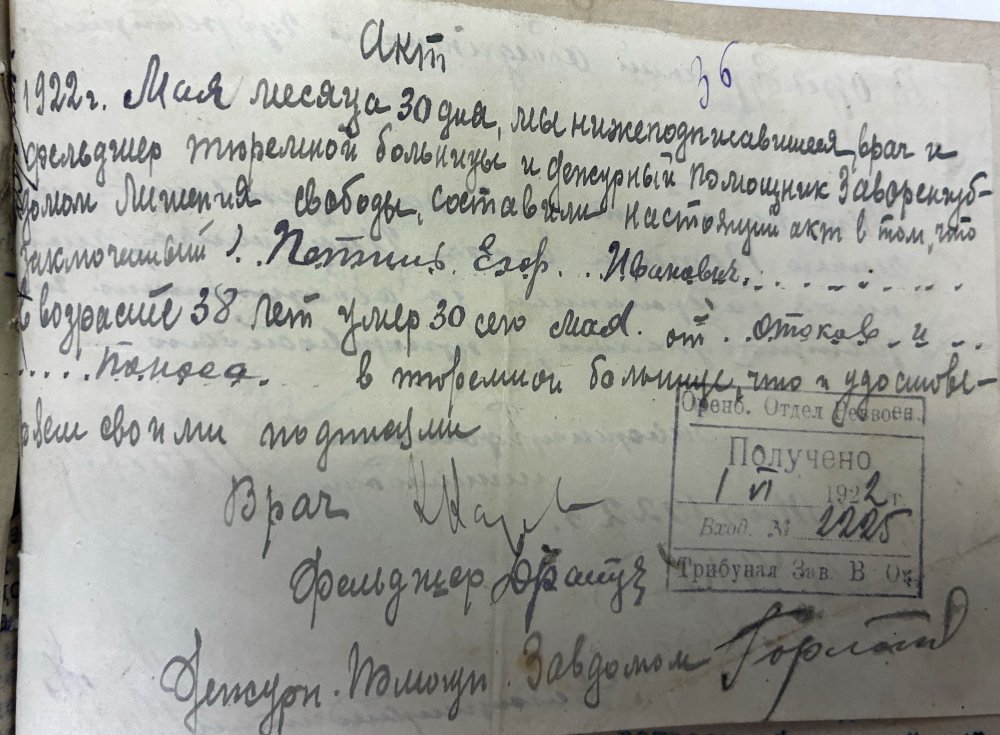 Акт
36
1922 г. Мая месяца 30 дня, мы нижеподписавшиеся, врач и
фельдшер тюремной больницы и дежурный помощник Заворенгуб-
домом Лишения свободы, составили настоящий акт в том, что
Заключенный Егор Иванович
в возрасте 38 лет умер 30 сего мая от отоков и
поноса в тюремной больнице, что и удостове-
ряем своими подписями
Врач
Фельджер
Дежурн. Помощн. Завдомом
Оренб. Отдел Реввоен.
Получено
1 VI 1922 г.
Вход. № 2225
Трибунал Зав. В От